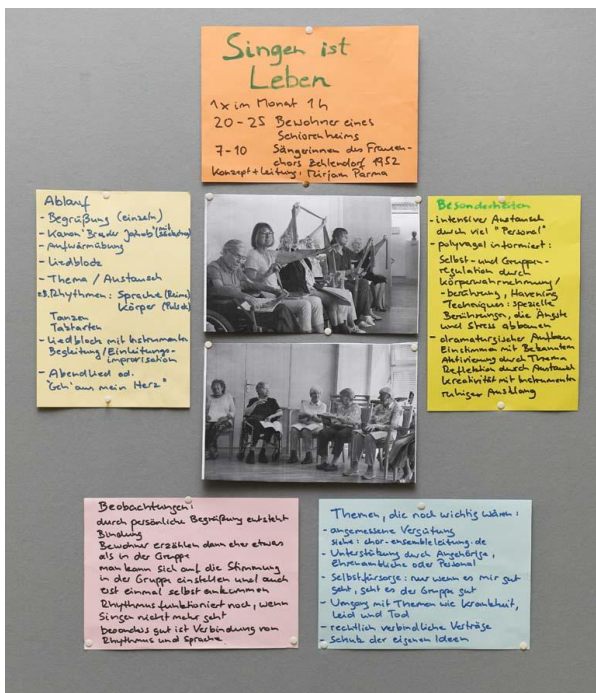 Singen ist
Leben
1x im Monat 1h
20-25 Bewohner eines
Seniorenheims
7-10 Sängerinnen des Frauen-
chors Zehlendorf 1952
Konzept + Leitung: Mirjam Parma
Ablauf
- Begrüßung (einzeln)
- Kanon "Bruder Jakob" (mit
- Aufwärmübung
- Liedblock
- Thema / Austausch
z.B. Rhythmen: Sprache (Reime)
Körper (Puls)
Tanzen
Tabtarten
- Liedblock mit Instrumenten
Begleitung / Einleitungs-
improvisation
- Abendlied od.
"Geh' aus mein Herz"
Besonderheiten
- intensiver Austausch
durch viel "Personal"
- polyvagal informiert:
Selbst- und Gruppen-
regulation durch
Körperwahrnehmung /
-berührung, Havening
Techniques: spezielle
Berührungen, die Ängste
und Stress abbauen
- dramaturgischer Aufbau
Einstimmen mit Bekanntem
Aktivierung durch Thema
Reflektion durch Austausch
Kreativität mit Instrumenten
ruhiger Ausklang
Beobachtungen:
durch persönliche Begrüßung entsteht
Bindung
Bewohner erzählen dann eher etwas
als in der Gruppe
man kann sich auf die Stimmung
in der Gruppe einstellen und auch
erst einmal selbst ankommen
Rhythmus funktioniert noch, wenn
Singen nicht mehr geht
besonders gut ist Verbindung von
Rhythmus und Sprache
Themen, die noch wichtig wären:
- angemessene Vergütung
siehe: chor-ensembleleitung.de
- Unterstützung durch Angehörige,
Ehrenamtliche oder Personal
- Selbstfürsorge: nur wenn es mir gut
geht, geht es der Gruppe gut
- Umgang mit Themen wie Krankheit,
Leid und Tod
- rechtlich verbindliche Verträge
- Schutz der eigenen Ideen